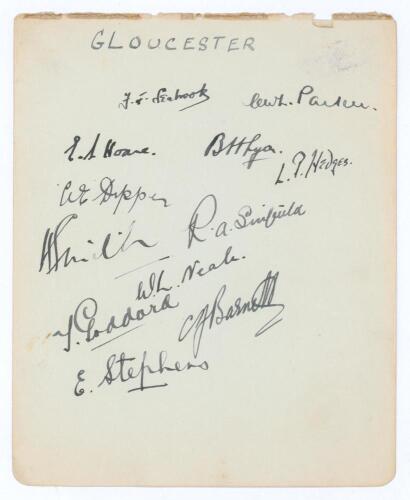 GLOUCESTER
F. J. Seabrook
C.W.L. Parker.
E. S Hoare.
B H Lyon
L. P. Hedges.
A E Dipper
H Smith
R. a. Sinfield
W.L. Neale.
T. Goddard
C J Barnett
E. Stephens